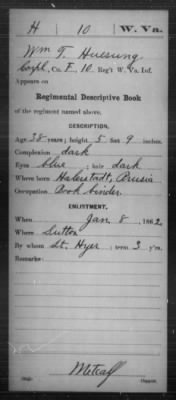 H 10 W. Va.
Wm T. Huesung.
Corpl, Co. F, 10 Reg't W. Va. Inf.
Appears on
Regimental Descriptive Book
of the regiment named above.
DESCRIPTION.
Age 28 years; height 5 feet 9 inches.
Complexion dark
Eyes blue; hair dark
Where born Halerstadt, Prusia
Occupation Book binder.
ENLISTMENT.
When Jan. 8, 1862.
Where Sutton
By whom Lt. Hyer; term 3 y'rs.
Remarks:
Metcalf
Copyist.